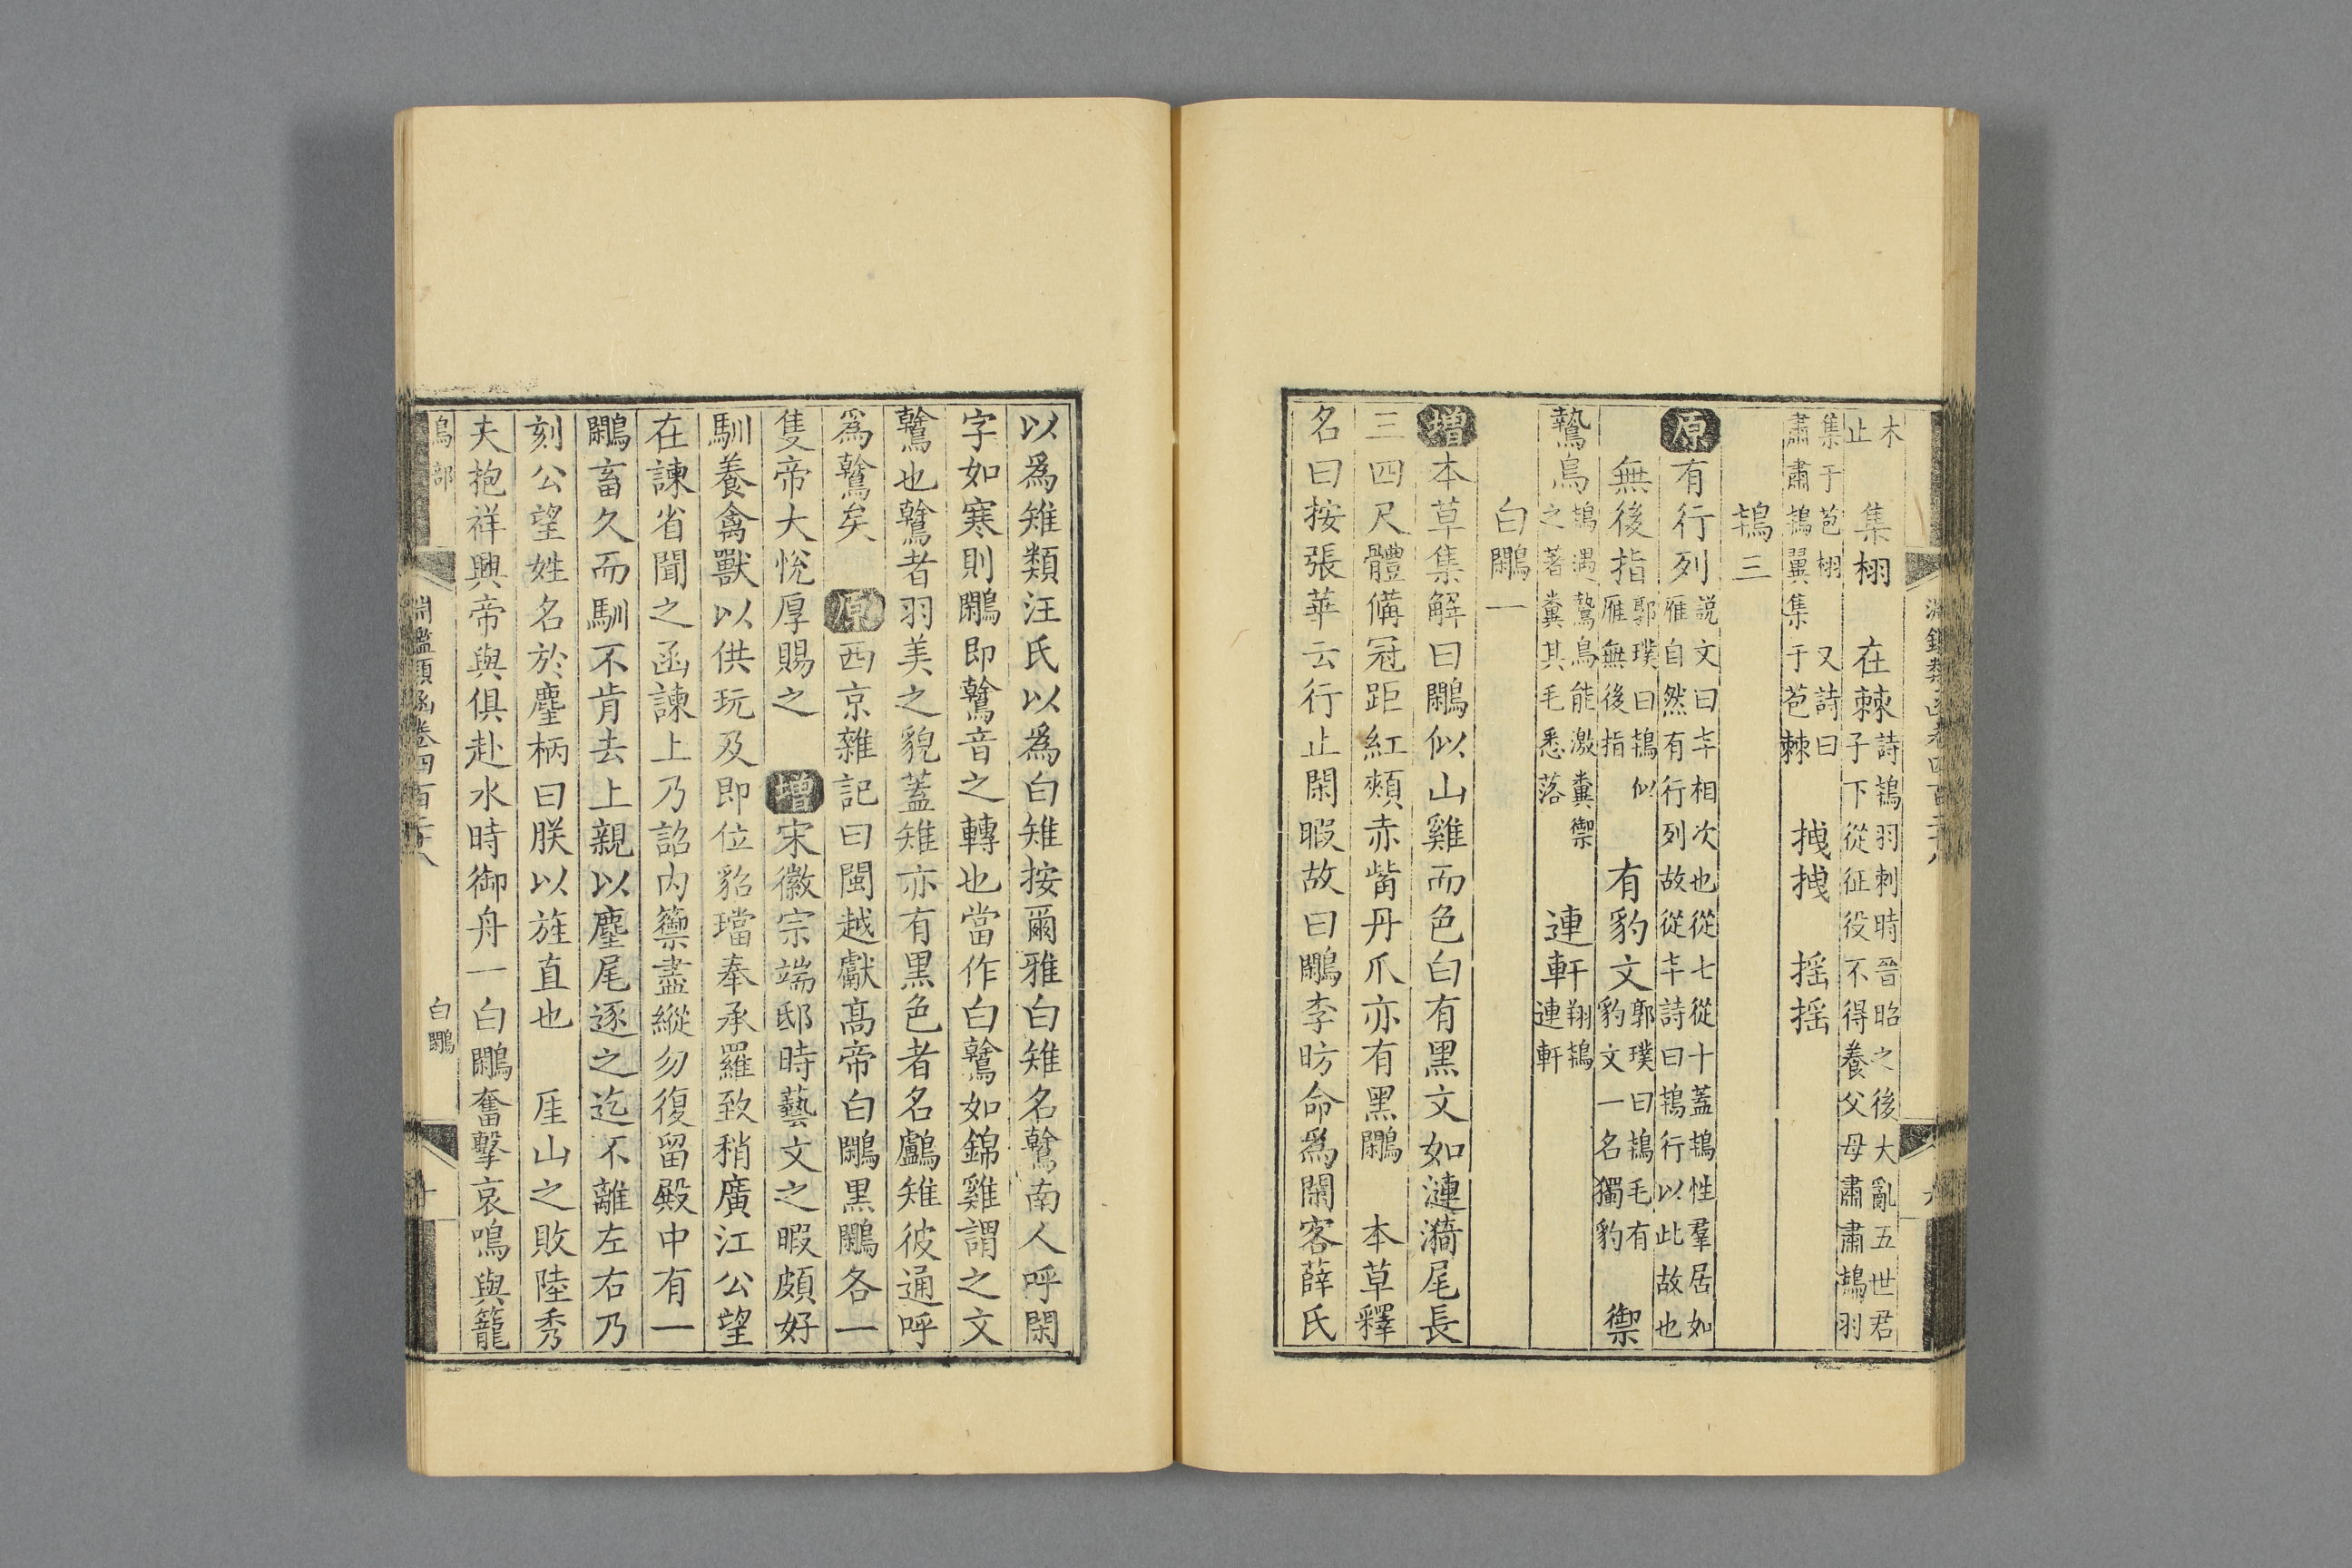 淵鑑類函卷四百二十八 九
木止 集栩 在棘 詩鴇羽刺時晉昭之後大亂五世君子下從征役不得養父母肅肅鴇羽
集于苞栩 又詩曰肅肅鴇翼集于苞棘 拽拽 摇摇
鴇三
原 有行列 説文曰𠦒相次也從七從十蓋鴇性羣居如雁自然有行列故從𠦒詩曰鴇行以此故也
無後指 郭璞曰鴇似雁無後指 有豹文 郭璞曰鴇毛有豹文一名獨豹 禦
鷙鳥 鴇遇鷙鳥能激糞禦之著糞其毛悉落 連軒 翔鴇連軒
白鷴一
增 本草集解曰鷴似山雞而色白有黑文如漣漪尾長
三四尺體備冠距紅頰赤觜丹爪亦有黑鷴 本草釋
名曰按張華云行止閑暇故曰鷴李昉命爲閑客薛氏
以爲雉類汪氏以爲白雉按爾雅白雉名鶾南人呼閑
字如寒則鷴即鶾音之轉也當作白鶾如錦雞謂之文
鶾也鶾者羽美之貌蓋雉亦有黑色者名鸕雉彼通呼
爲鶾矣 原 西京雜記曰閩越獻高帝白鷴黑鷴各一
隻帝大悅厚賜之 增 宋徽宗端邸時藝文之暇頗好
馴養禽獸以供玩及即位貂璫奉承羅致稍廣江公望
在諫省聞之函諫上乃詔内籞盡縱勿復留殿中有一
鷴畜久而馴不肯去上親以麈尾逐之迄不離左右乃
刻公望姓名於麈柄曰朕以旌直也 厓山之敗陸秀
夫抱祥興帝與俱赴水時御舟一白鷴奮擊哀鳴與籠
鳥部 淵鑑類函卷四百二十八 白鷴 十